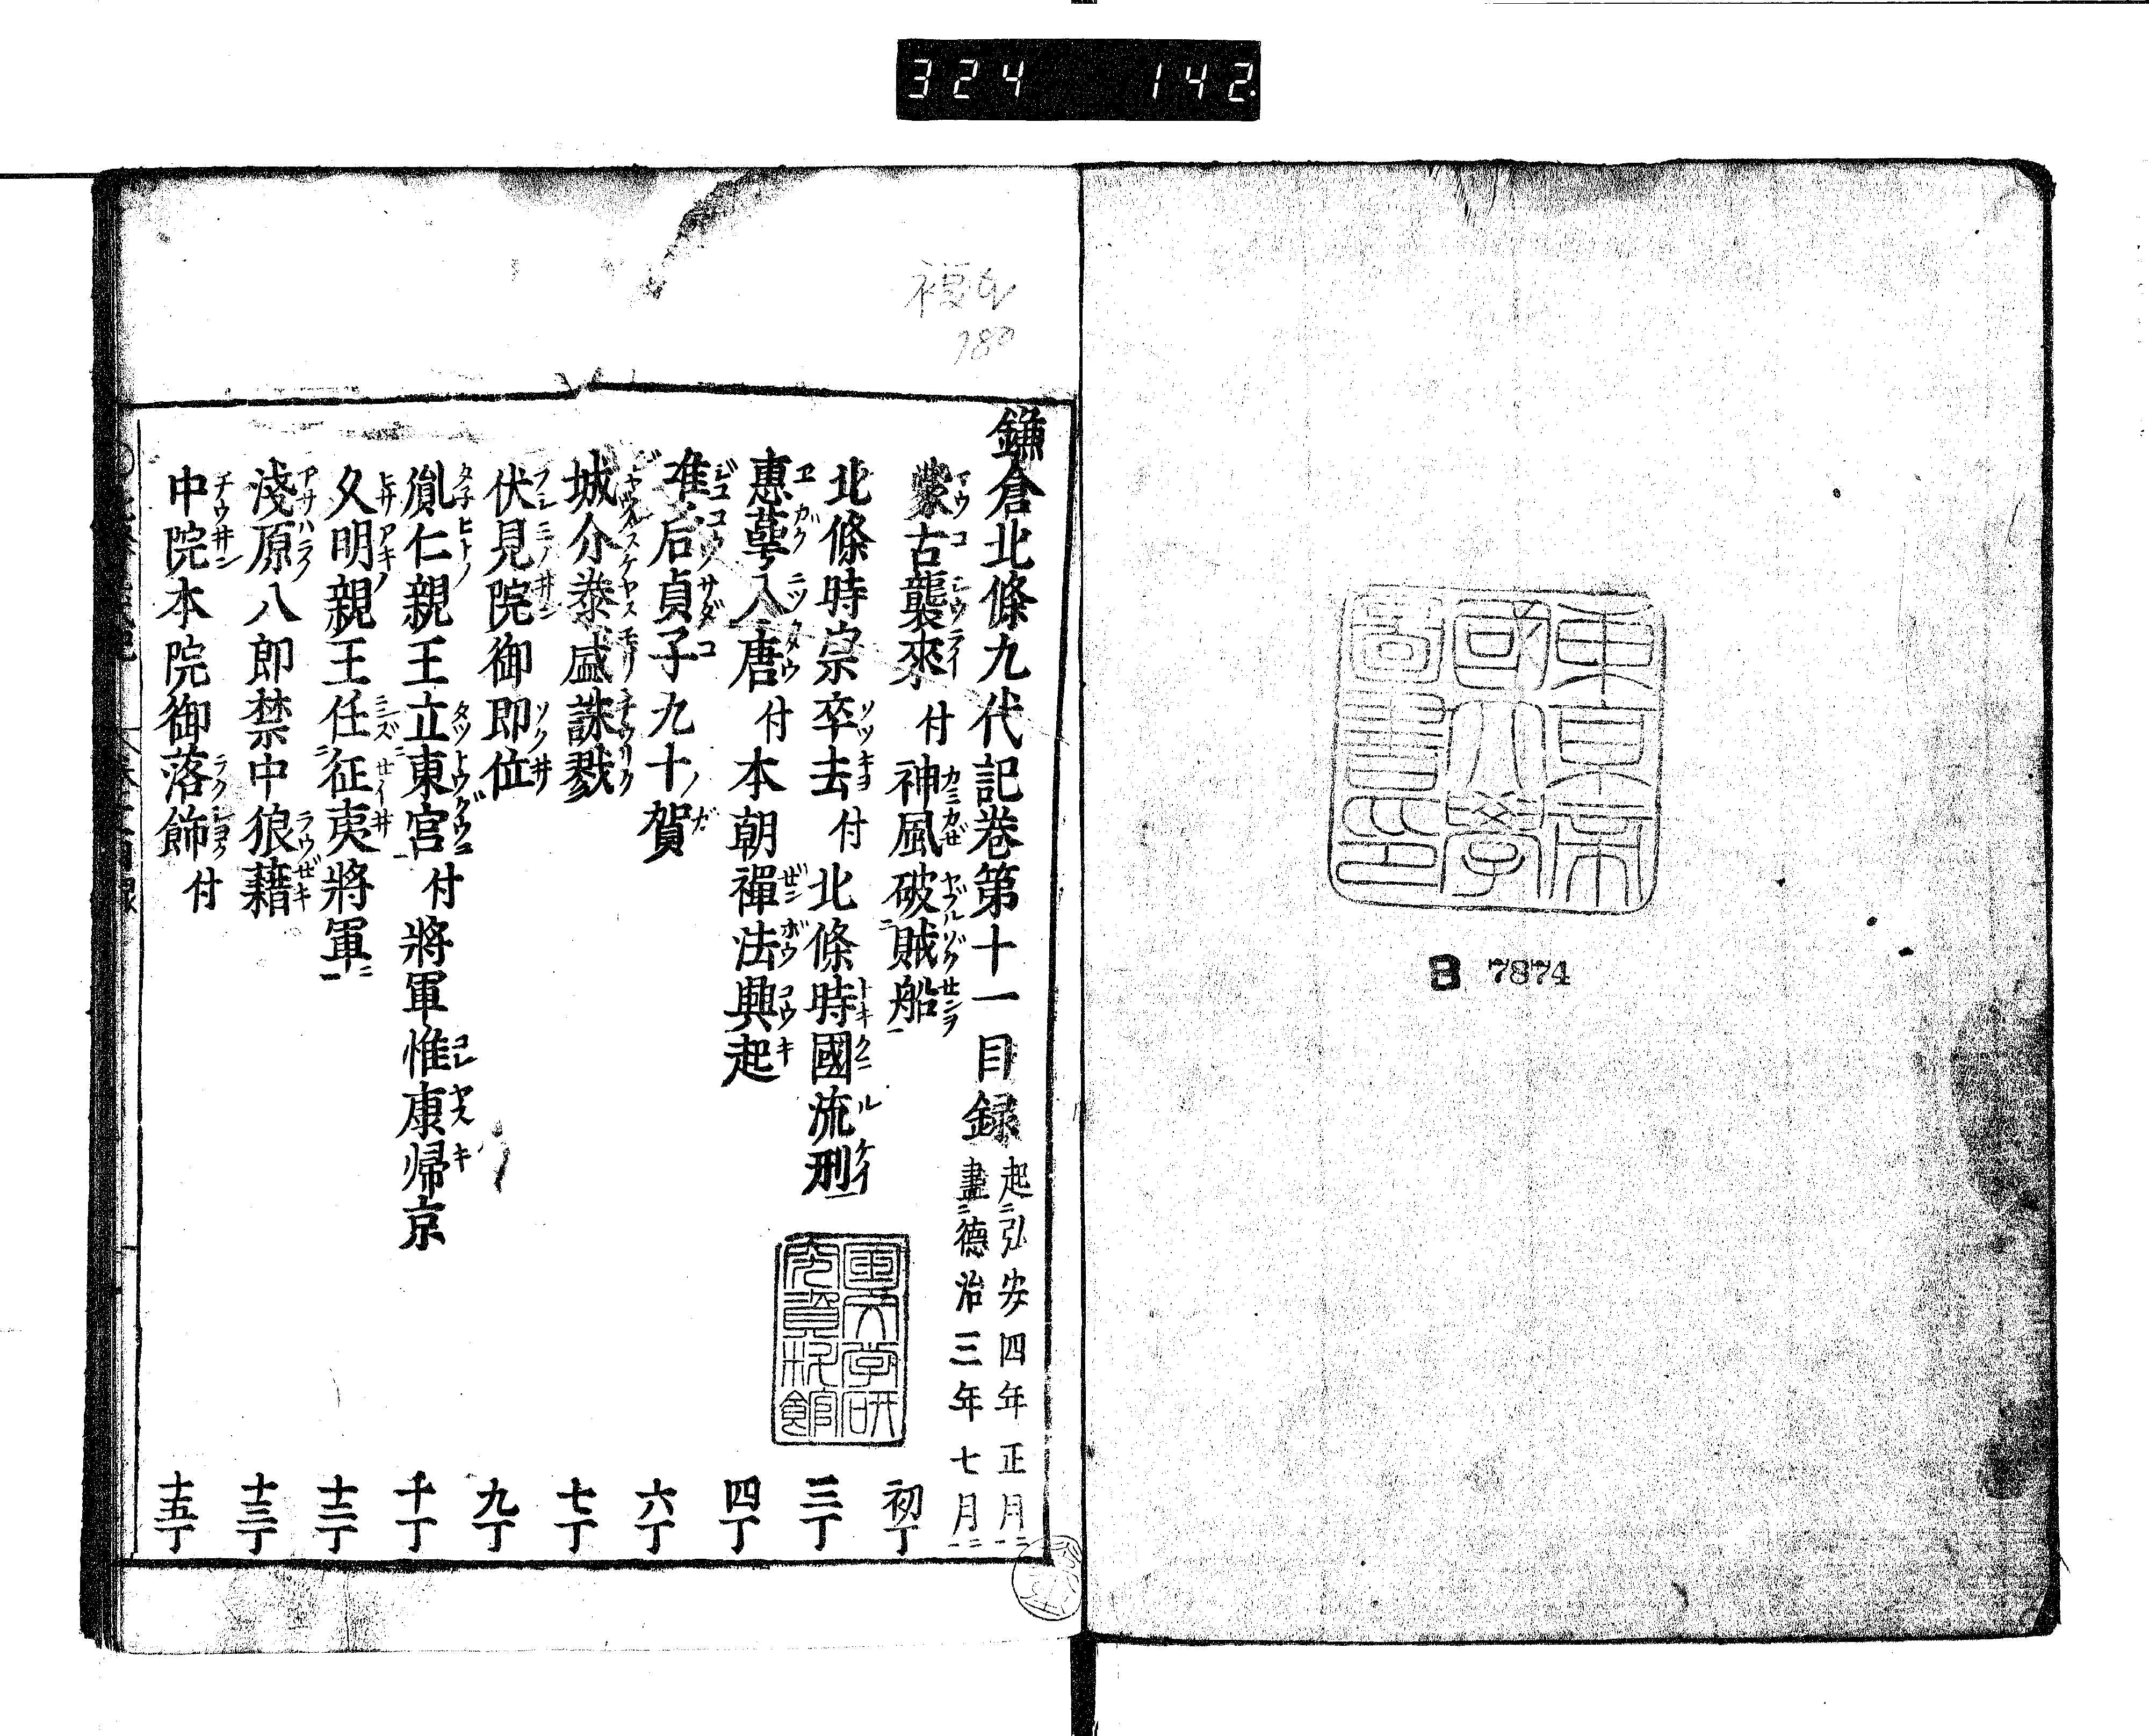 324 142
東京帝
國大學
圖書印
B 7874
鎌倉北條九代記巻第十一目録 起弘安四年正月 盡德治三年七月
蒙古襲來 付 神風破賊船 初丁
北條時宗卒去 付 北條時國流刑 三丁
惠萼入唐 付 本朝禪法興起 四丁
准后貞子九十賀 六丁
城介泰盛誅戮 七丁
伏見院御即位 九丁
胤仁親王立東宮 付 將軍惟康帰京 十丁
久明親王任征夷將軍 十二丁
淺原八郎禁中狼藉 十三丁
中院本院御落飾 付 十五丁
国文学研
究資料館
780